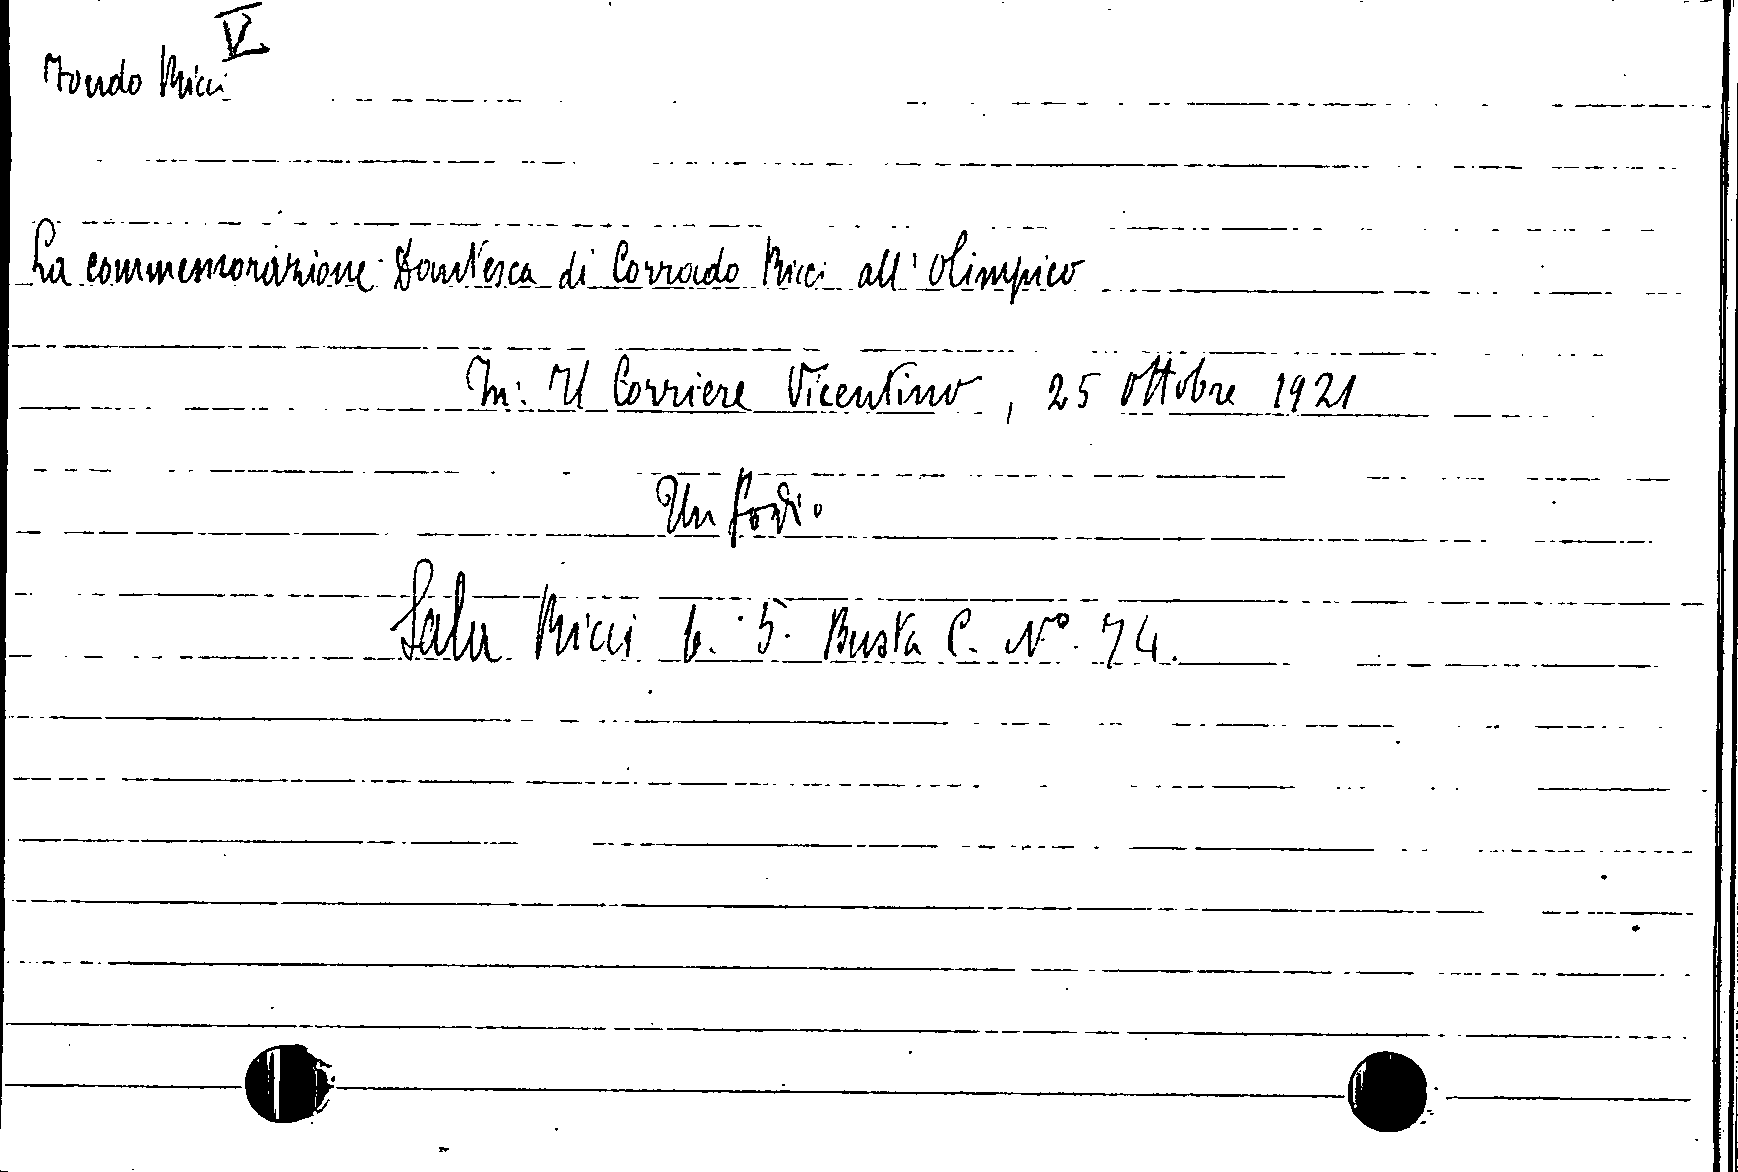 V
Fondo Ricci
La commemorazione Dantesca di Corrado Ricci all'Olimpico
In: Il Corriere Vicentino, 25 Ottobre 1921
Un fogl.
Sala Ricci b. 5. Busta C. N° 74.